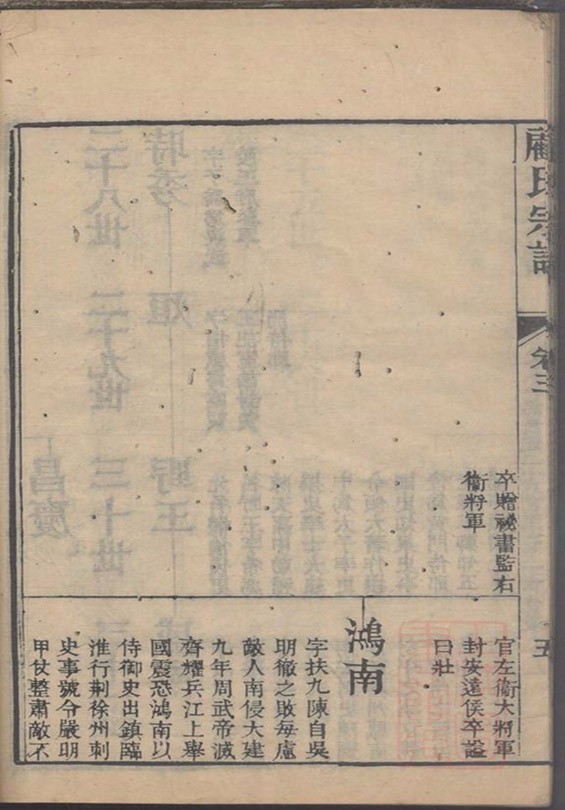 顧氏宗譜
卷三
五
卒贈祕書監右
衞將軍
官左衞大將軍
封安遠侯卒謚
曰壯
鴻南
字扶九陳自吳
明徹之敗每慮
敵人南侵大建
九年周武帝滅
齊耀兵江上舉
國震恐鴻南以
侍御史出鎮臨
淮行荆徐州刺
史事號令嚴明
甲仗整肅敵不